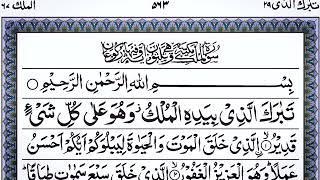 تبرك الذى ٢٩
٥٦٣
الملك ٦٧
بِسْمِ اللهِ الرَّحْمٰنِ الرَّحِيْمِ
تَبٰرَكَ الَّذِىْ بِيَدِهِ الْمُلْكُ وَهُوَ عَلٰى كُلِّ شَىْءٍ
قَدِيْرُۙ ۝ الَّذِىْ خَلَقَ الْمَوْتَ وَالْحَيٰوةَ لِيَبْلُوَكُمْ اَيُّكُمْ اَحْسَنُ
عَمَلًاؕ وَهُوَ الْعَزِيْزُ الْغَفُوْرُۙ ۝ الَّذِىْ خَلَقَ سَبْعَ سَمٰوٰتٍ طِبَاقًاؕ